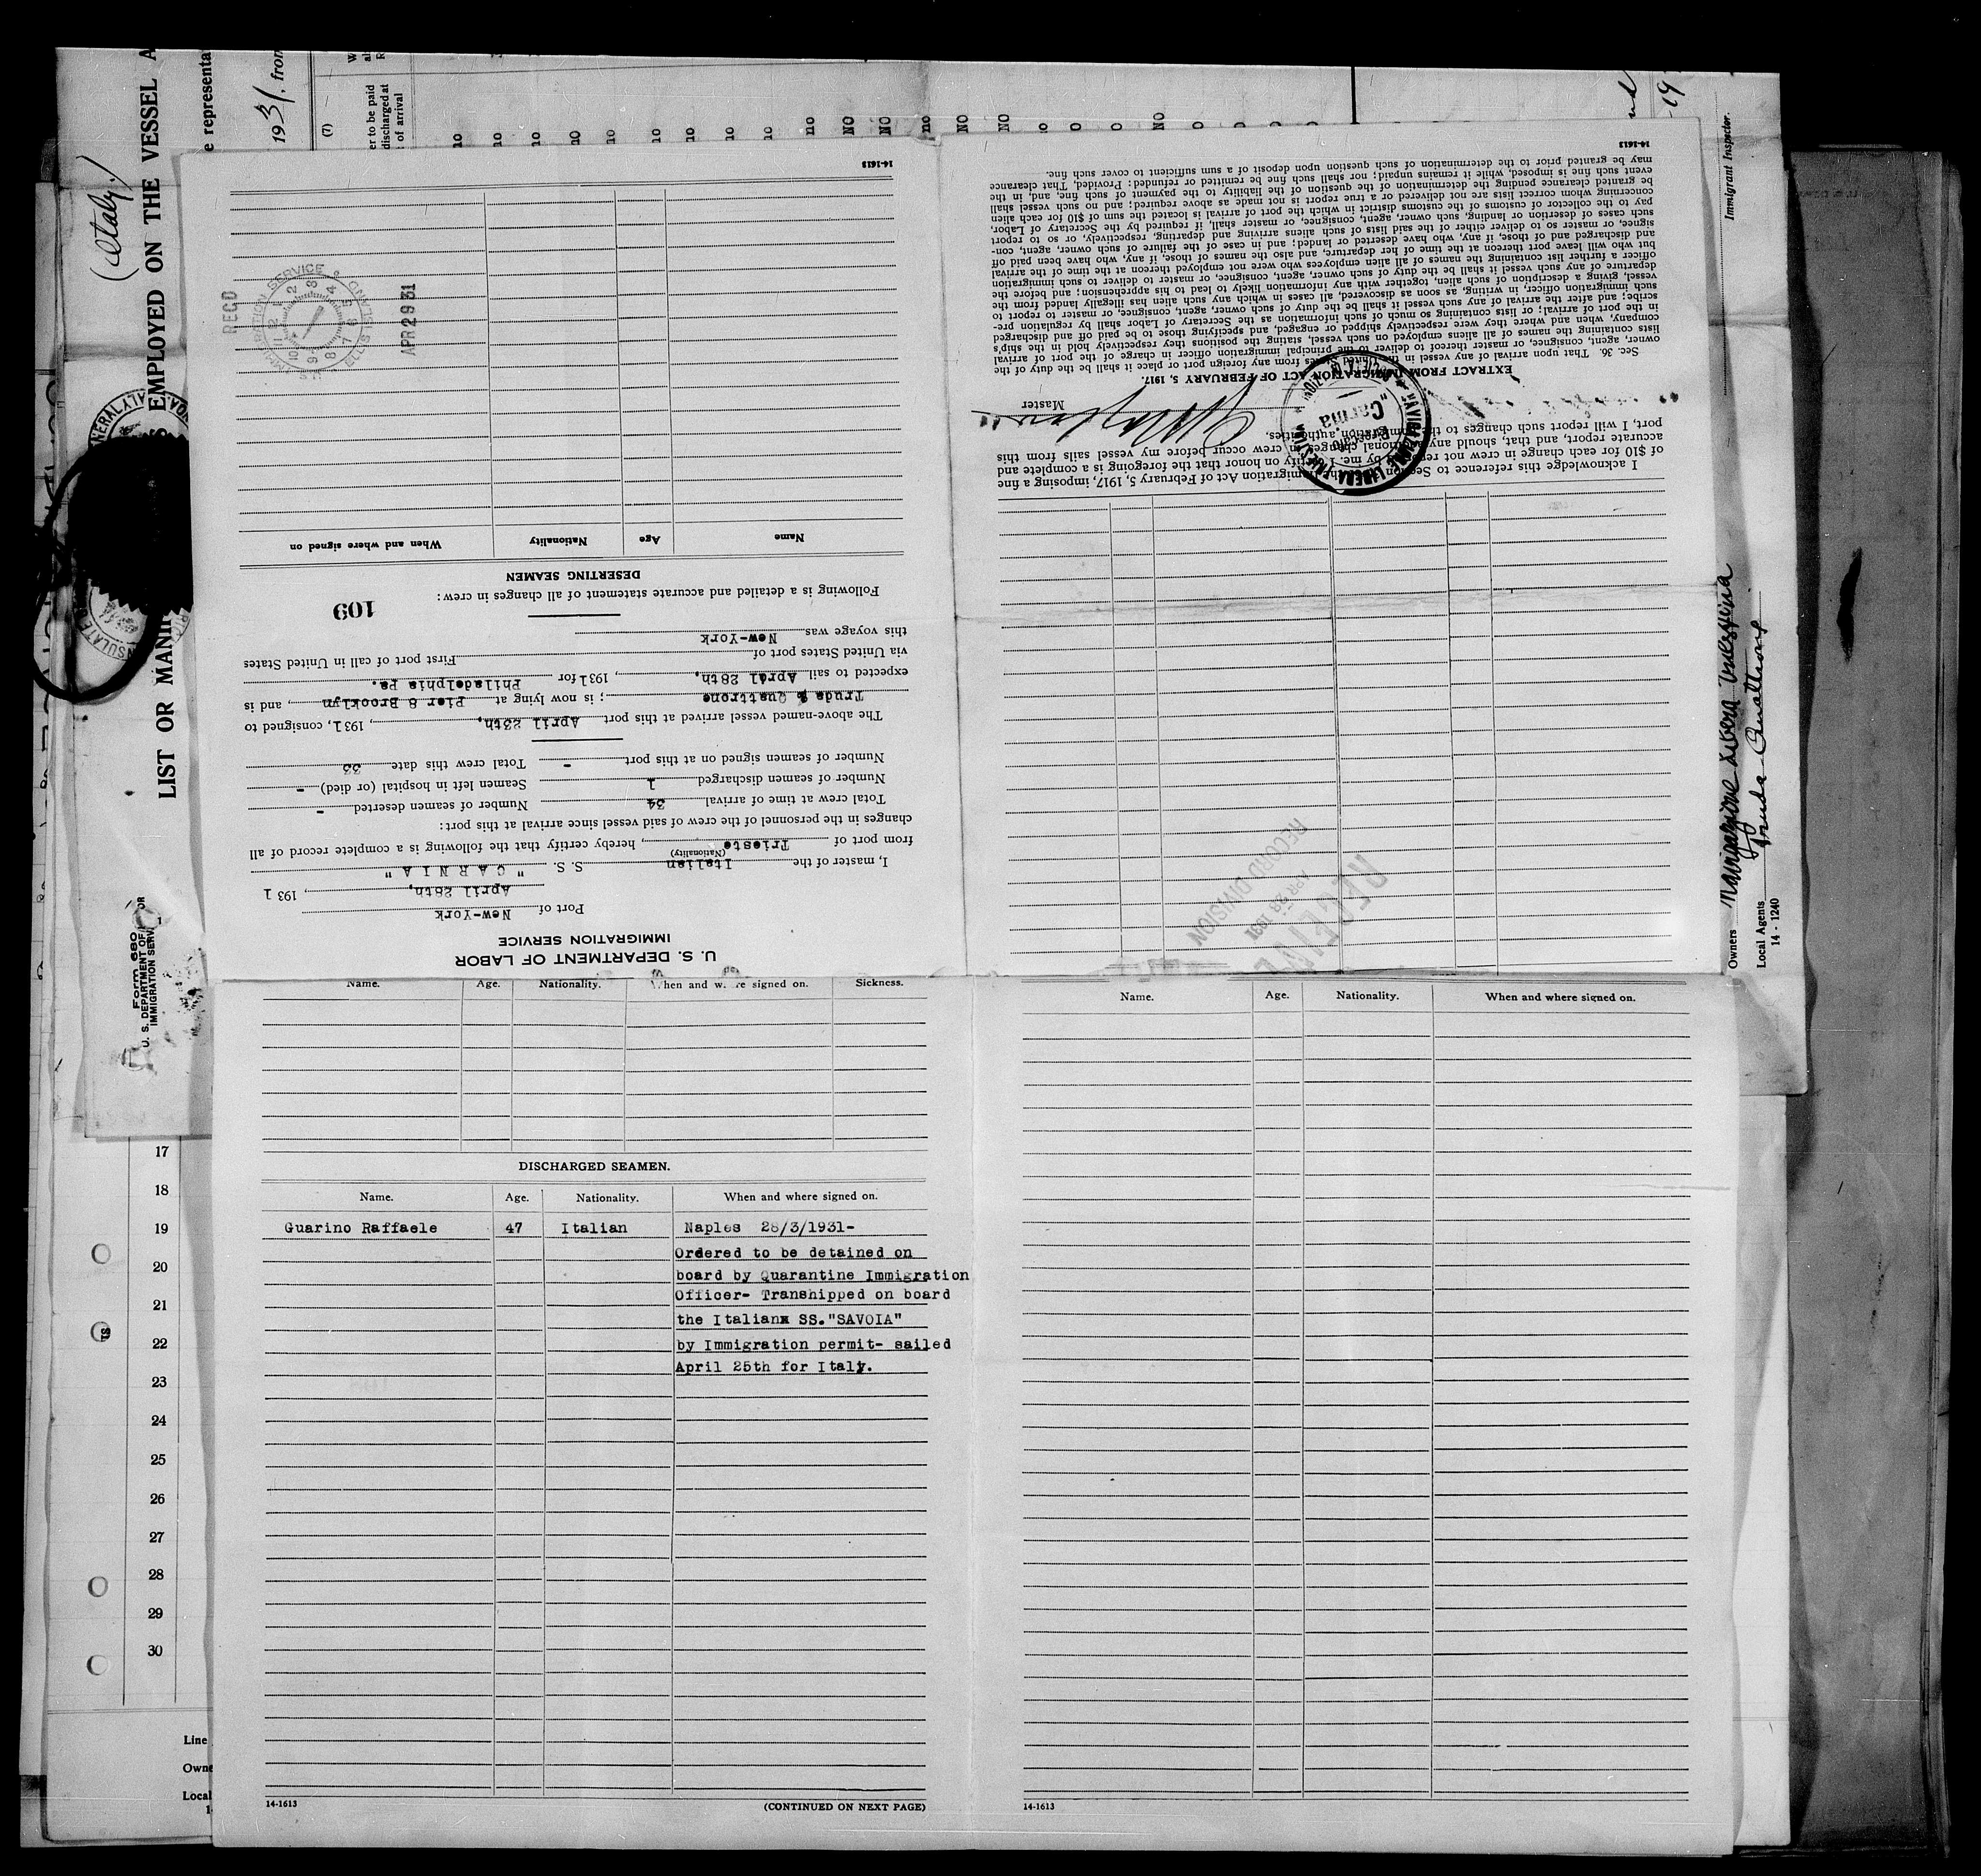 U. S. DEPARTMENT OF LABOR
IMMIGRATION SERVICE
Port of New-York
April 28th, 1931
I, master of the Italian S. S. "CARNIA"
(Nationality)
from port of Trieste, hereby certify that the following is a complete record of all
changes in the personnel of the crew of said vessel since arrival at this port:
Total crew at time of arrival 34 Number of seamen deserted -
Number of seamen discharged 1 Seamen left in hospital (or died) -
Number of seamen signed on at this port - Total crew this date 33
The above-named vessel arrived at this port April 23th, 1931, consigned to
Truda & Quattrone; is now lying at Pier 8 Brooklyn, and is
expected to sail April 28th, 1931 for Philadelphia Pa.
via United States port of First port of call in United States
this voyage was New-York
109
Following is a detailed and accurate statement of all changes in crew:
DESERTING SEAMEN
Name Age Nationality When and where signed on
REC'D
U.S. IMMIGRATION SERVICE ELLIS ISLAND
APR 29 31
14-1613
Name. Age. Nationality. When and where signed on. Sickness.
DISCHARGED SEAMEN.
Name. Age. Nationality. When and where signed on.
Guarino Raffaele 47 Italian Naples 28/3/1931-
Ordered to be detained on
board by Quarantine Immigration
Officer- Transhipped on board
the Italianx SS."SAVOIA"
by Immigration permit- sailed
April 25th for Italy.
14-1613 (CONTINUED ON NEXT PAGE)
Name. Age. Nationality. When and where signed on.
14-1613
RECEIVED
APR 28 1931
RECORD DIVISION
I acknowledge this reference to Section 36 of the Immigration Act of February 5, 1917, imposing a fine
of $10 for each change in crew not reported by me. I certify on honor that the foregoing is a complete and
accurate report, and that, should any additional changes in crew occur before my vessel sails from this
port, I will report such changes to the immigration authorities.
Master
"Carnia"
EXTRACT FROM IMMIGRATION ACT OF FEBRUARY 5, 1917.
Sec. 36. That upon arrival of any vessel in the United States from any foreign port or place it shall be the duty of the
owner, agent, consignee, or master thereof to deliver to the principal immigration officer in charge of the port of arrival
lists containing the names of all aliens employed on such vessel, stating the positions they respectively hold in the ship's
company, when and where they were respectively shipped or engaged, and specifying those to be paid off and discharged
in the port of arrival; or lists containing so much of such information as the Secretary of Labor shall by regulation pre-
scribe; and after the arrival of any such vessel it shall be the duty of such owner, agent, consignee, or master to report to
such immigration officer, in writing, as soon as discovered, all cases in which any such alien has illegally landed from the
vessel, giving a description of such alien, together with any information likely to lead to his apprehension; and before the
departure of any such vessel it shall be the duty of such owner, agent, consignee, or master to deliver to such immigration
officer a further list containing the names of all alien employees who were not employed thereon at the time of the arrival
but who will leave port thereon at the time of her departure, and also the names of those, if any, who have been paid off
and discharged and of those, if any, who have deserted or landed; and in case of the failure of such owner, agent, con-
signee, or master so to deliver either of the said lists of such aliens arriving and departing, respectively, or so to report
such cases of desertion or landing, such owner, agent, consignee, or master shall, if required by the Secretary of Labor,
pay to the collector of customs of the customs district in which the port of arrival is located the sum of $10 for each alien
concerning whom correct lists are not delivered or a true report is not made as above required; and no such vessel shall
be granted clearance pending the determination of the question of the liability to the payment of such fine, and, in the
event such fine is imposed, while it remains unpaid; nor shall such fine be remitted or refunded: Provided, That clearance
may be granted prior to the determination of such question upon deposit of a sum sufficient to cover such fine.
14-1613
(Italy)
EMPLOYED ON THE VESSEL A
LIST OR MANI
e representa
1931, from
(7)
er to be paid
discharged at
of arrival
no
no
NO
NO
no
NO
NO
NO
Form 680
U. S. DEPARTMENT OF LABOR
IMMIGRATION SERVICE
Immigrant Inspector.
Owners Navigazione Libera Triestina
Local Agents Truda Quattrone
14-1240
17
18
19
20
21
22
23
24
25
26
27
28
29
30
Line
Owne
Local